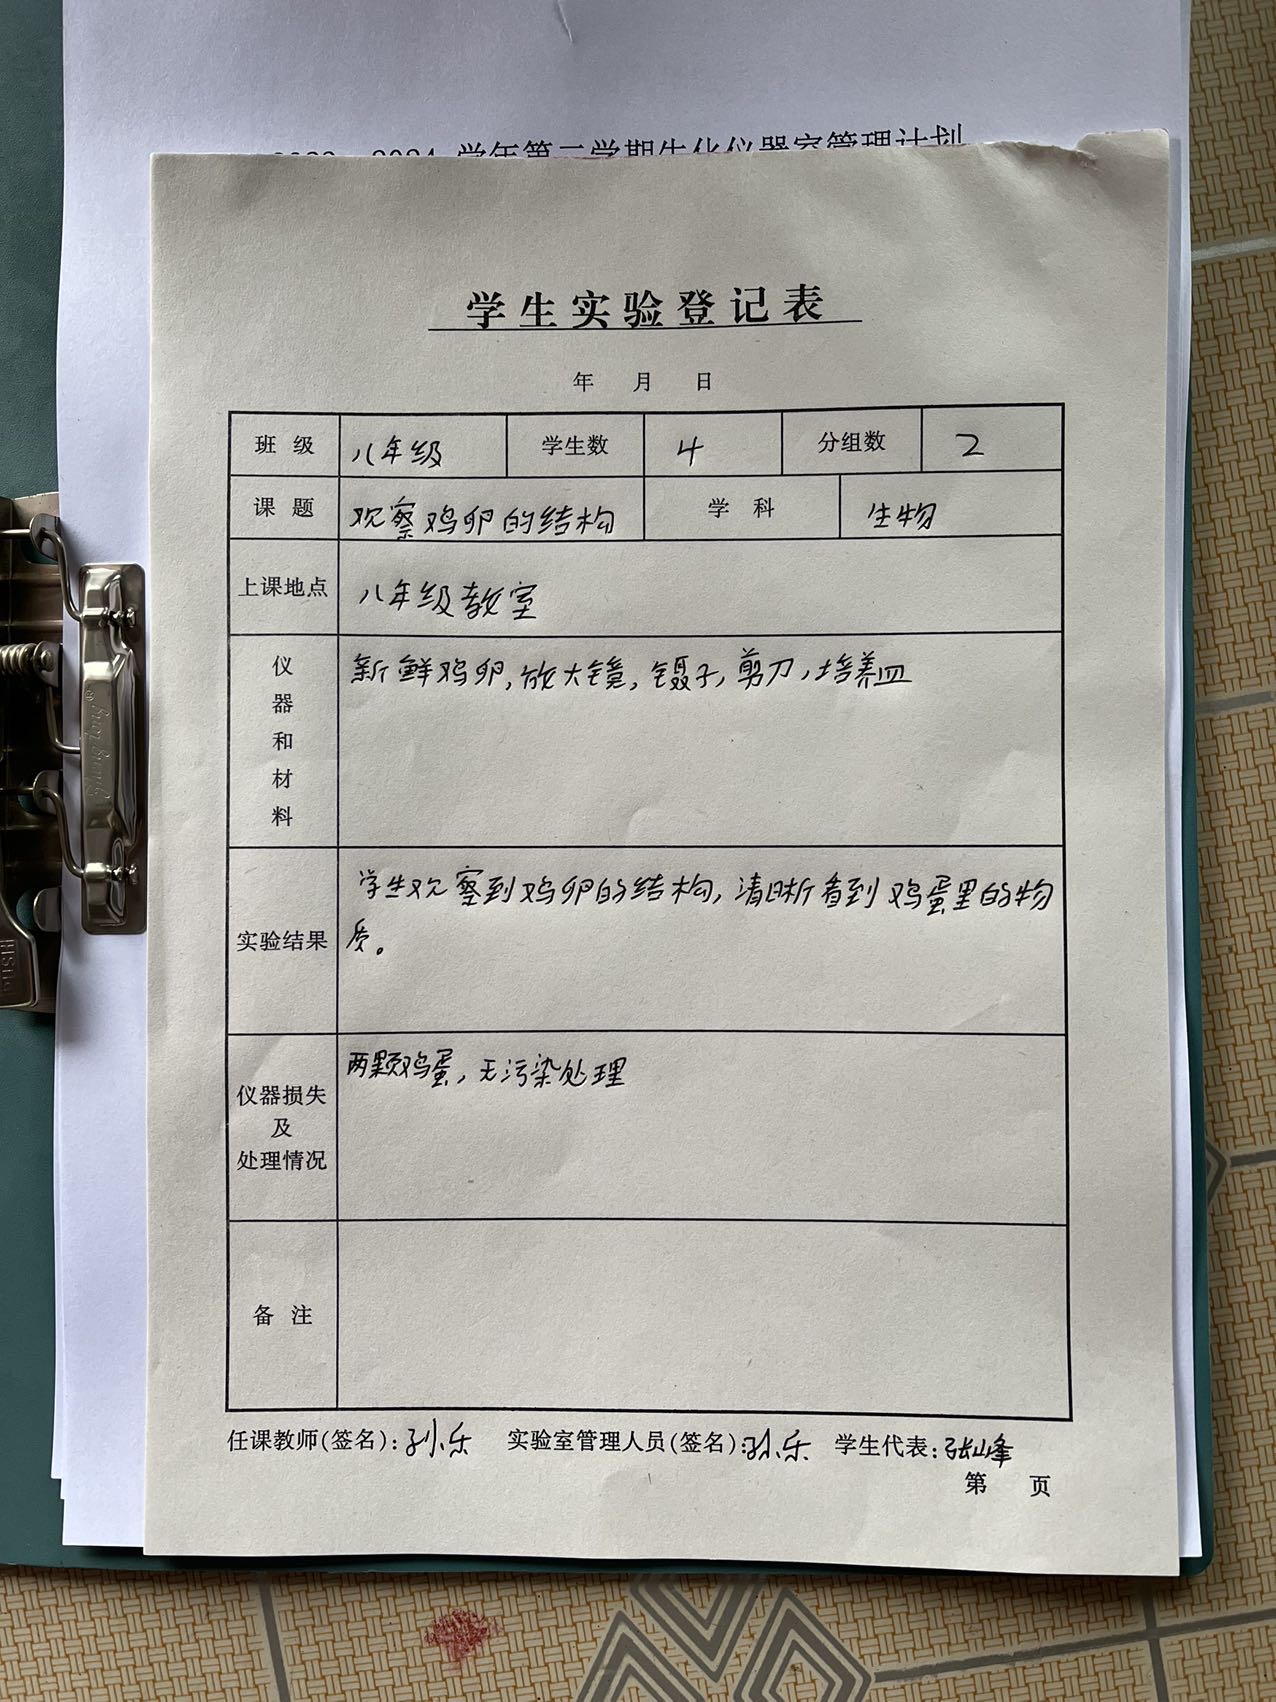 学年第二学期生化仪器室管理计划
学生实验登记表
年 月 日
班级 八年级 学生数 4 分组数 2
课题 观察鸡卵的结构 学科 生物
上课地点 八年级教室
仪器和材料 新鲜鸡卵,放大镜,镊子,剪刀,培养皿
实验结果 学生观察到鸡卵的结构,清晰看到鸡蛋里的物
质。
仪器损失
及
处理情况 两颗鸡蛋,无污染处理
备注
任课教师(签名):孙乐 实验室管理人员(签名):孙乐 学生代表:张山峰
第 页